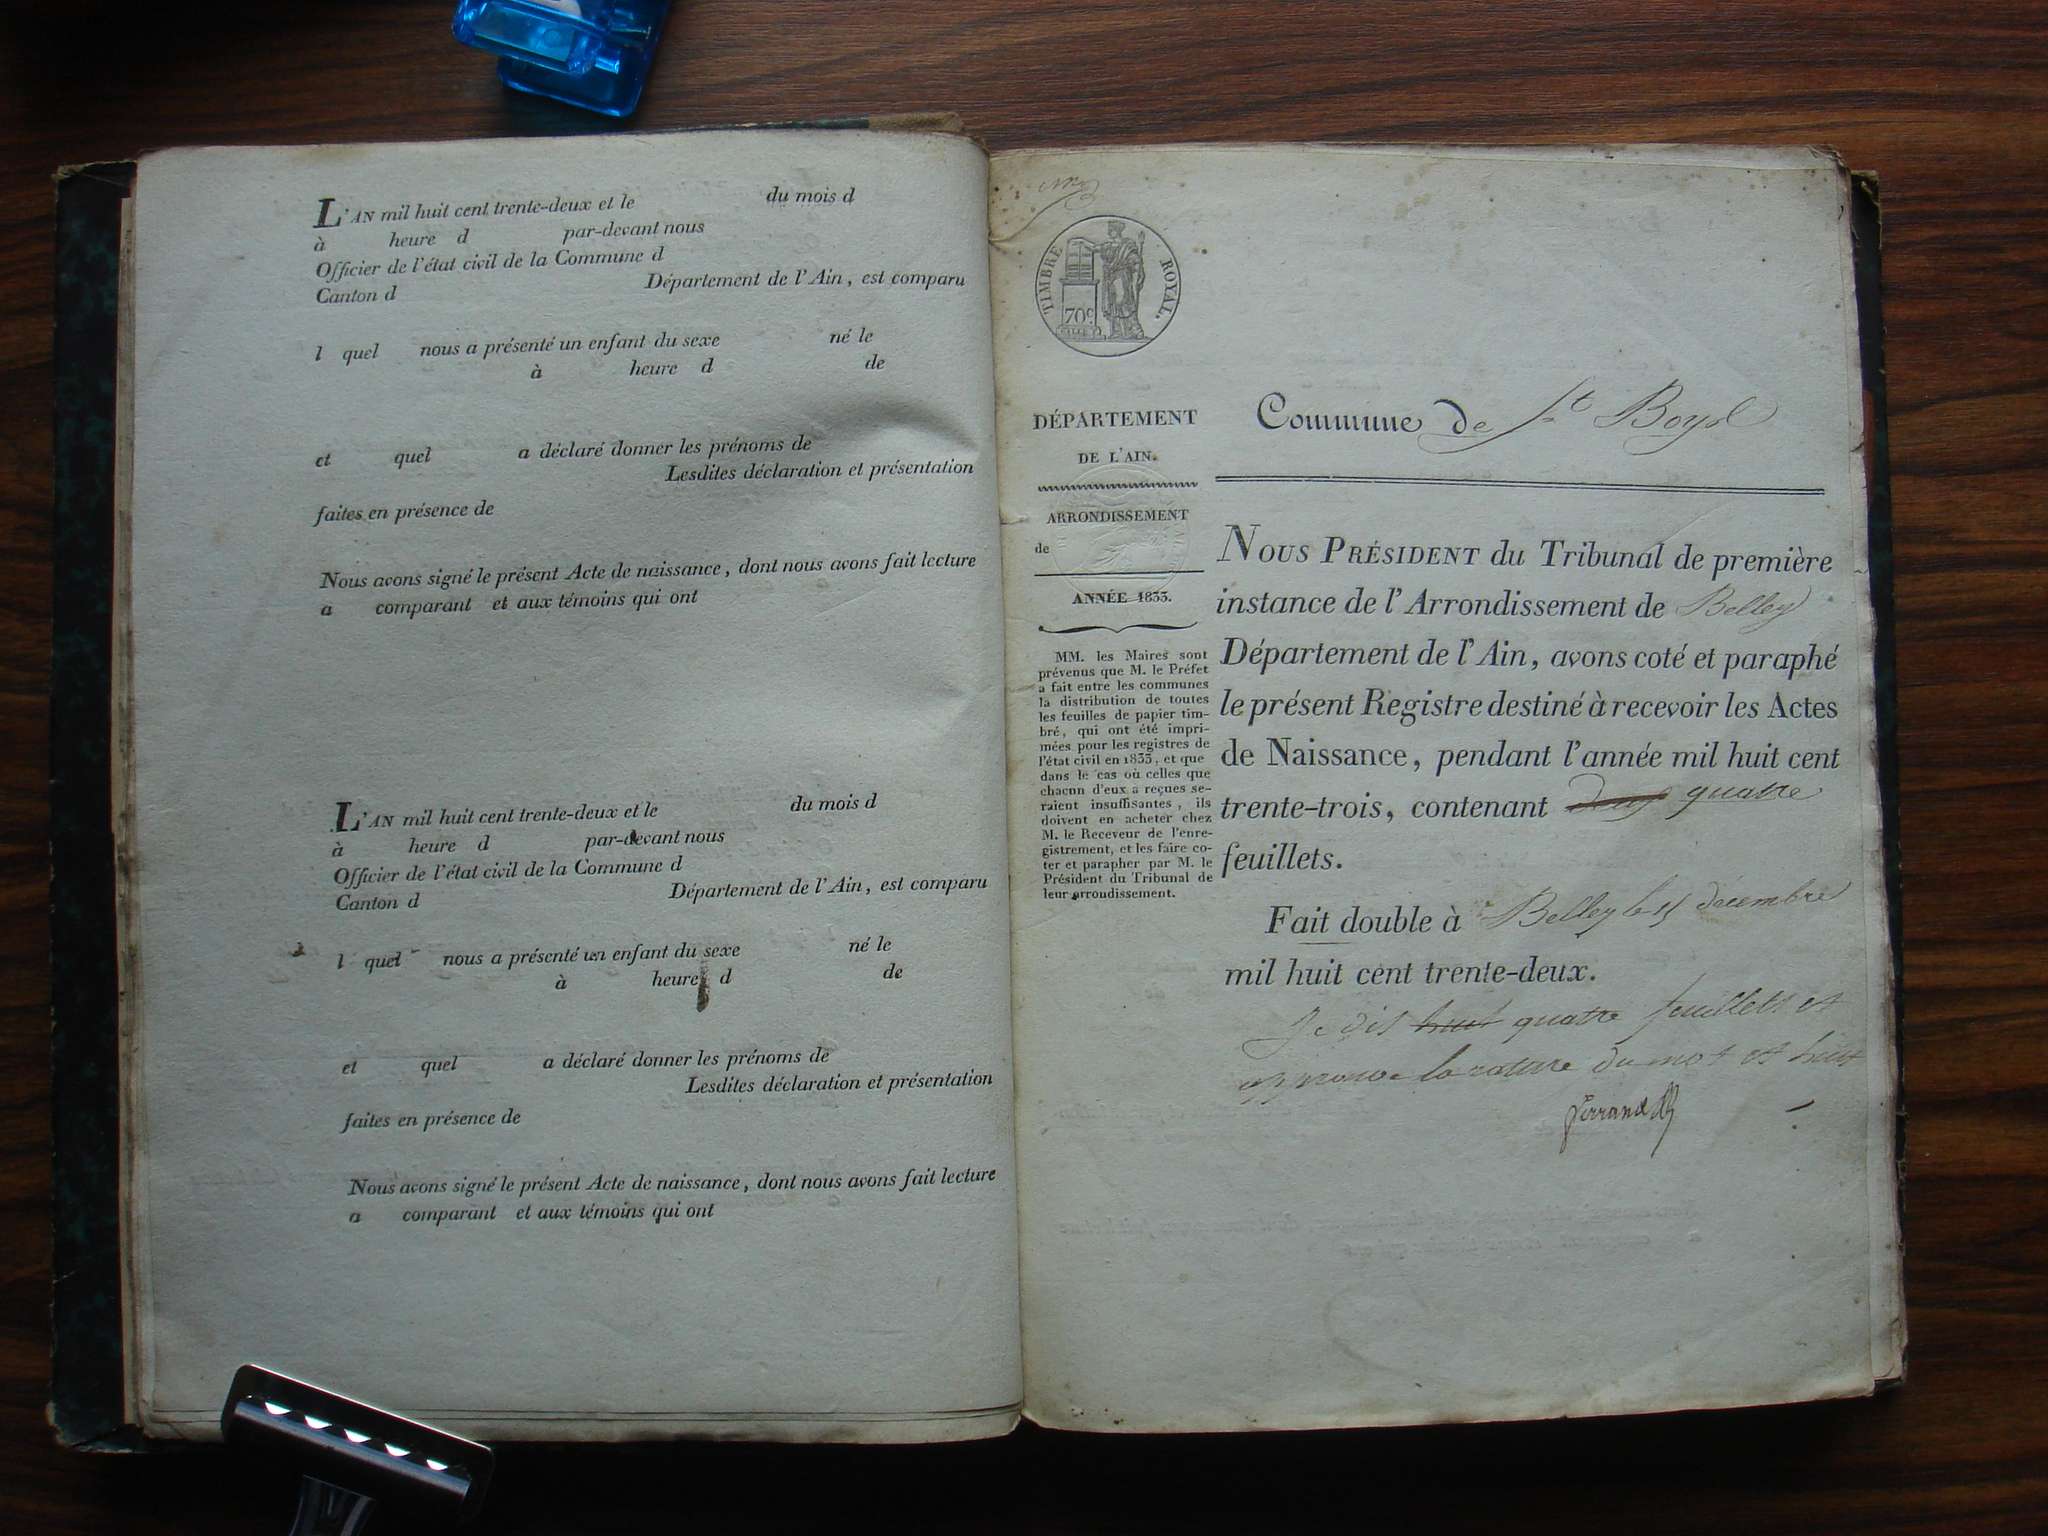 L'AN mil huit cent trente-deux et le du mois d
à heure d par-devant nous
Officier de l'état civil de la Commune d
Canton d Département de l'Ain, est comparu
l quel nous a présenté un enfant du sexe né le
à heure d de
et quel a déclaré donner les prénoms de
Lesdites déclaration et présentation
faites en présence de
Nous avons signé le présent Acte de naissance, dont nous avons fait lecture
a comparant et aux témoins qui ont
L'AN mil huit cent trente-deux et le du mois d
à heure d par-devant nous
Officier de l'état civil de la Commune d
Canton d Département de l'Ain, est comparu
l quel nous a présenté un enfant du sexe né le
à heure d de
et quel a déclaré donner les prénoms de
Lesdites déclaration et présentation
faites en présence de
Nous avons signé le présent Acte de naissance, dont nous avons fait lecture
a comparant et aux témoins qui ont
TIMBRE ROYAL.
70c
DÉPARTEMENT
DE L'AIN.
ARRONDISSEMENT
de
ANNÉE 1833.
MM. les Maires sont
prévenus que M. le Préfet
a fait entre les communes
la distribution de toutes
les feuilles de papier tim-
bré, qui ont été impri-
mées pour les registres de
l'état civil en 1833, et que
dans le cas où celles que
chacun d'eux a reçues se-
raient insuffisantes, ils
doivent en acheter chez
M. le Receveur de l'enre-
gistrement, et les faire co-
ter et parapher par M. le
Président du Tribunal de
leur arrondissement.
Commune de St Boys
NOUS PRÉSIDENT du Tribunal de première
instance de l'Arrondissement de Belley
Département de l'Ain, avons coté et paraphé
le présent Registre destiné à recevoir les Actes
de Naissance, pendant l'année mil huit cent
trente-trois, contenant quatre
feuillets.
Fait double à Belley le 15 décembre
mil huit cent trente-deux.
Je dis huit quatre feuillets et
approuve la rature du mot huit